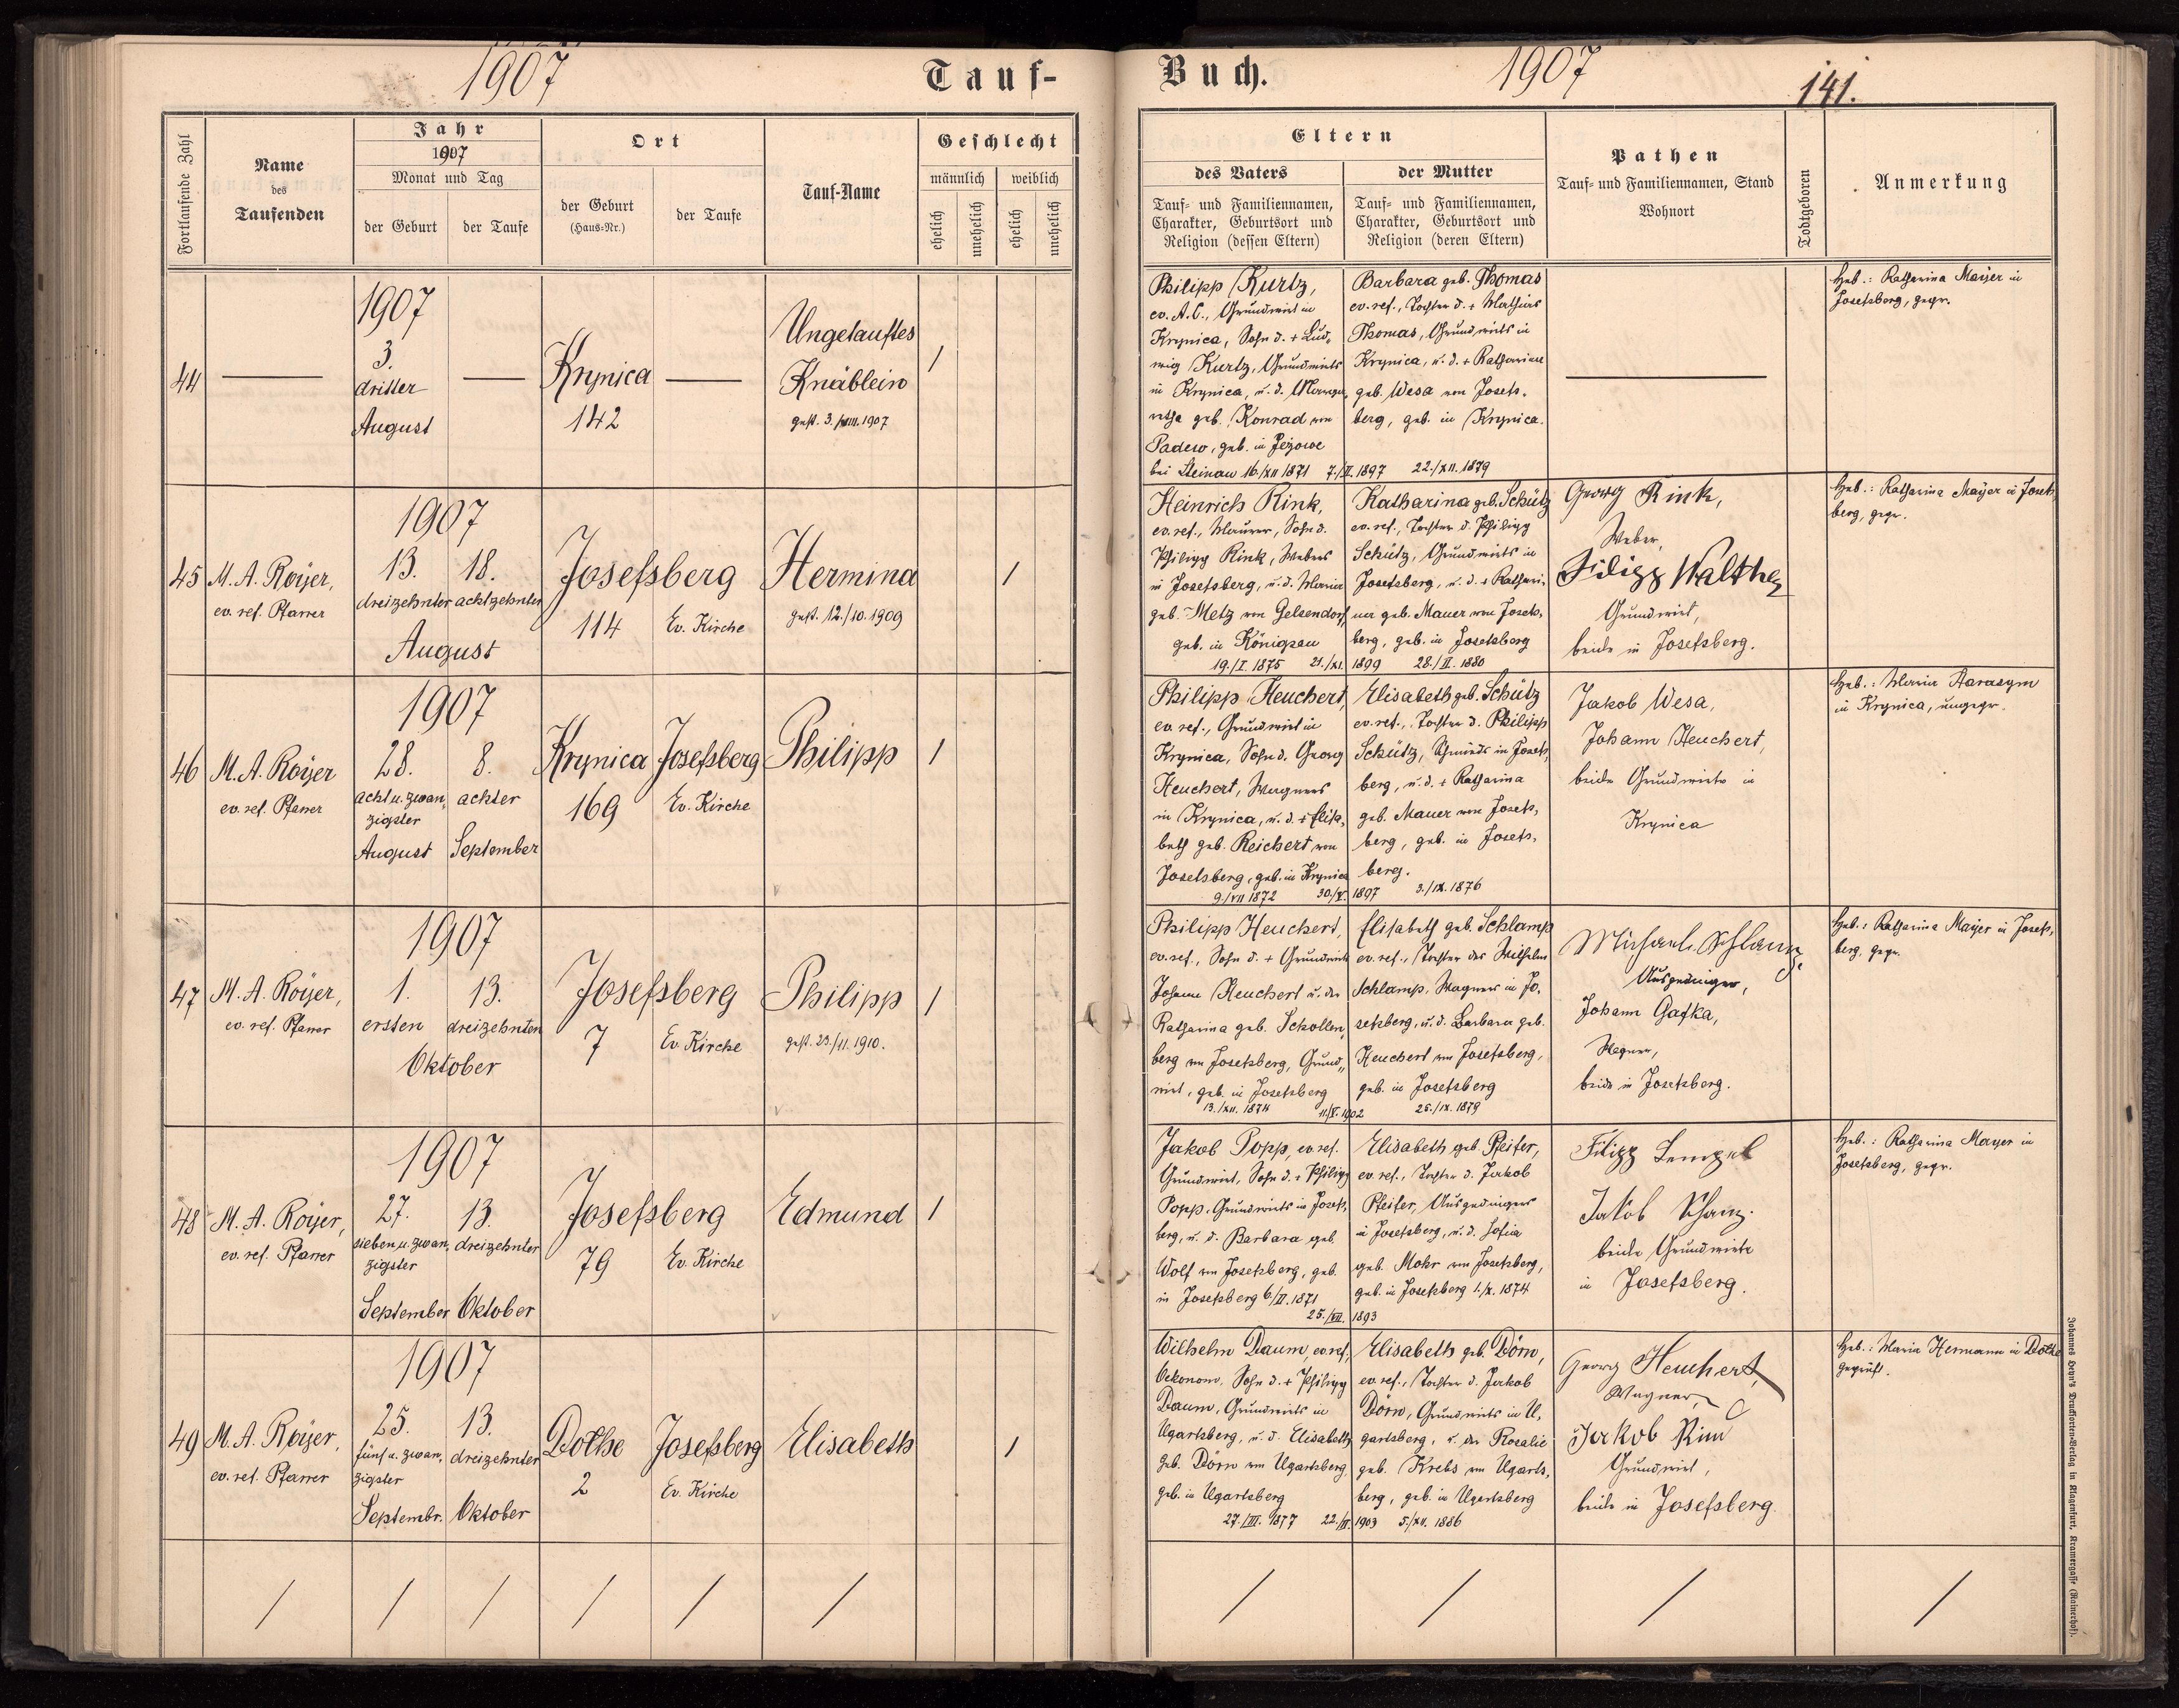 1907
Tauf-
Buch.
1907
141.
Fortlaufende Zahl
Name
des
Taufenden
Jahr
1907
Monat und Tag
der Geburt
der Taufe
Ort
der Geburt
(Haus-Nr.)
der Taufe
Tauf-Name
Geschlecht
männlich
weiblich
ehelich
unehelich
ehelich
unehelich
Eltern
des Vaters
Tauf- und Familiennamen,
Charakter, Geburtsort und
Religion (dessen Eltern)
der Mutter
Tauf- und Familiennamen,
Charakter, Geburtsort und
Religion (deren Eltern)
Pathen
Tauf- und Familiennamen, Stand
Wohnort
Todtgeboren
Anmerkung
44
1907
3.
dritter
August
Krynica
142
Ungetauftes
Knäblein
gest. 3./VIII. 1907
/
Philipp Kurtz,
ev. A.C., Grundwirt in
Krynica, Sohn d. + Lud-
wig Kurtz, Grundwirts
in Krynica, u. d. Marga-
retha geb. Konrad von
Padew, geb. in Jeżowe
bei Steinau 16./XII 1871 7./II. 1897
Barbara geb. Thomas
ev. ref., Tochter d. + Mathias
Thomas, Grundwirts in
Krynica, u. d. + Katharina
geb. Wesa von Josefs-
berg, geb. in Krynica.
22./XII. 1879
Heb.: Katharina Mayer in
Josefsberg, gepr.
45
M. A. Royer,
ev. ref. Pfarrer
1907
13. 18.
dreizehnter achtzehnter
August
Josefsberg
114 Ev. Kirche
Hermina
gest. 12./10. 1909
1
Heinrich Rink,
ev. ref., Maurer, Sohn d.
Philipp Rink, Webers
in Josefsberg, u. d. Maria
geb. Metz von Gelsendorf,
geb. in Königsau
19./I 1875 21./XI. 1899
Katharina geb. Schütz
ev. ref., Tochter d. Philipp
Schütz, Grundwirts in
Josefsberg, u. d. + Kathari-
na geb. Mauer von Josefs-
berg, geb. in Josefsberg
28./II. 1880
Georg Rink,
Weber,
Filipp Walther
Grundwirt,
beide in Josefsberg.
Heb.: Katharina Mayer in Josefs-
berg, gepr.
46
M. A. Royer
ev. ref. Pfarrer
1907
28. 8.
acht u. zwan- achter
zigster
August September
Krynica Josefsberg
169 Ev. Kirche
Philipp
1
Philipp Heuchert,
ev. ref., Grundwirt in
Krynica, Sohn d. Georg
Heuchert, Wagners
in Krynica, u. d. + Elisa-
beth geb. Reichert von
Josefsberg, geb. in Krynica
9./VII 1872 30./V. 1897
Elisabeth geb. Schütz
ev. ref., Tochter d. Philipp
Schütz, Schmieds in Josefs-
berg, u. d. + Katharina
geb. Mauer von Josefs-
berg, geb. in Josefs-
berg.
3./IX. 1876
Jakob Wesa,
Johann Heuchert,
beide Grundwirte in
Krynica
Heb.: Maria Harasym
in Krynica, ungepr.
47
M. A. Royer,
ev. ref. Pfarrer
1907
1. 13.
ersten dreizehnten
Oktober
Josefsberg
7 Ev. Kirche
Philipp
gest. 23./11. 1910.
1
Philipp Heuchert,
ev. ref., Sohn d. + Grundwirts
Johann Heuchert u. der
Katharina geb. Schollen-
berg von Josefsberg, Grund-
wirt, geb. in Josefsberg
13./XII. 1874 11./V. 1902
Elisabeth geb. Schlamp
ev. ref., Tochter des Wilhelm
Schlamp, Wagners in Jo-
sefsberg, u. d. Barbara geb.
Heuchert von Josefsberg,
geb. in Josefsberg
25./IX. 1879
Michael Schlamp
Ausgedinger,
Johann Gafka,
Wagner,
beide in Josefsberg.
Heb.: Katharina Mayer in Josefs-
berg, gepr.
48
M. A. Royer,
ev. ref. Pfarrer
1907
27. 13.
sieben u. zwan- dreizehnter
zigster
September Oktober
Josefsberg
79 Ev. Kirche
Edmund
1
Jakob Popp, ev. ref.
Grundwirt, Sohn d. + Philipp
Popp, Grundwirts in Josefs-
berg, u. d. Barbara geb.
Wolf von Josefsberg, geb.
in Josefsberg 6./II. 1871
25./VII. 1893
Elisabeth geb. Pfeifer,
ev. ref., Tochter d. Jakob
Pfeifer, Ausgedingers
in Josefsberg, u. d. Sofia
geb. Mohr von Josefsberg,
geb. in Josefsberg 1./X. 1874
Filipp Lempel
Jakob Schanz.
beide Grundwirte
in Josefsberg.
Heb.: Katharina Mayer in
Josefsberg, gepr.
49
M. A. Royer,
ev. ref. Pfarrer
1907
25. 13.
fünf u. zwan- dreizehnter
zigster
Septembr. Oktober
Dolhe Josefsberg
2 Ev. Kirche
Elisabeth
1
Wilhelm Daum, ev. ref.,
Oekonom, Sohn d. + Philipp
Daum, Grundwirts in
Ugartsberg, u. d. Elisabeth
geb. Dörn von Ugartsberg,
geb. in Ugartsberg
27./III. 1877 22./II. 1903
Elisabeth geb. Dörn,
ev. ref., Tochter d. Jakob
Dörn, Grundwirts in U-
gartsberg, u. der Rosalie
geb. Krebs von Ugarts-
berg, geb. in Ugartsberg
5./XII. 1886
Georg Heuchert,
Wagner,
Jakob
Grundwirt,
beide in Josefsberg.
Heb.: Maria Hermann in Dolhe
geprüft.
Johannes Heyn's Drucksorten-Verlag in Klagenfurt, Kramergasse (Rainerhof).